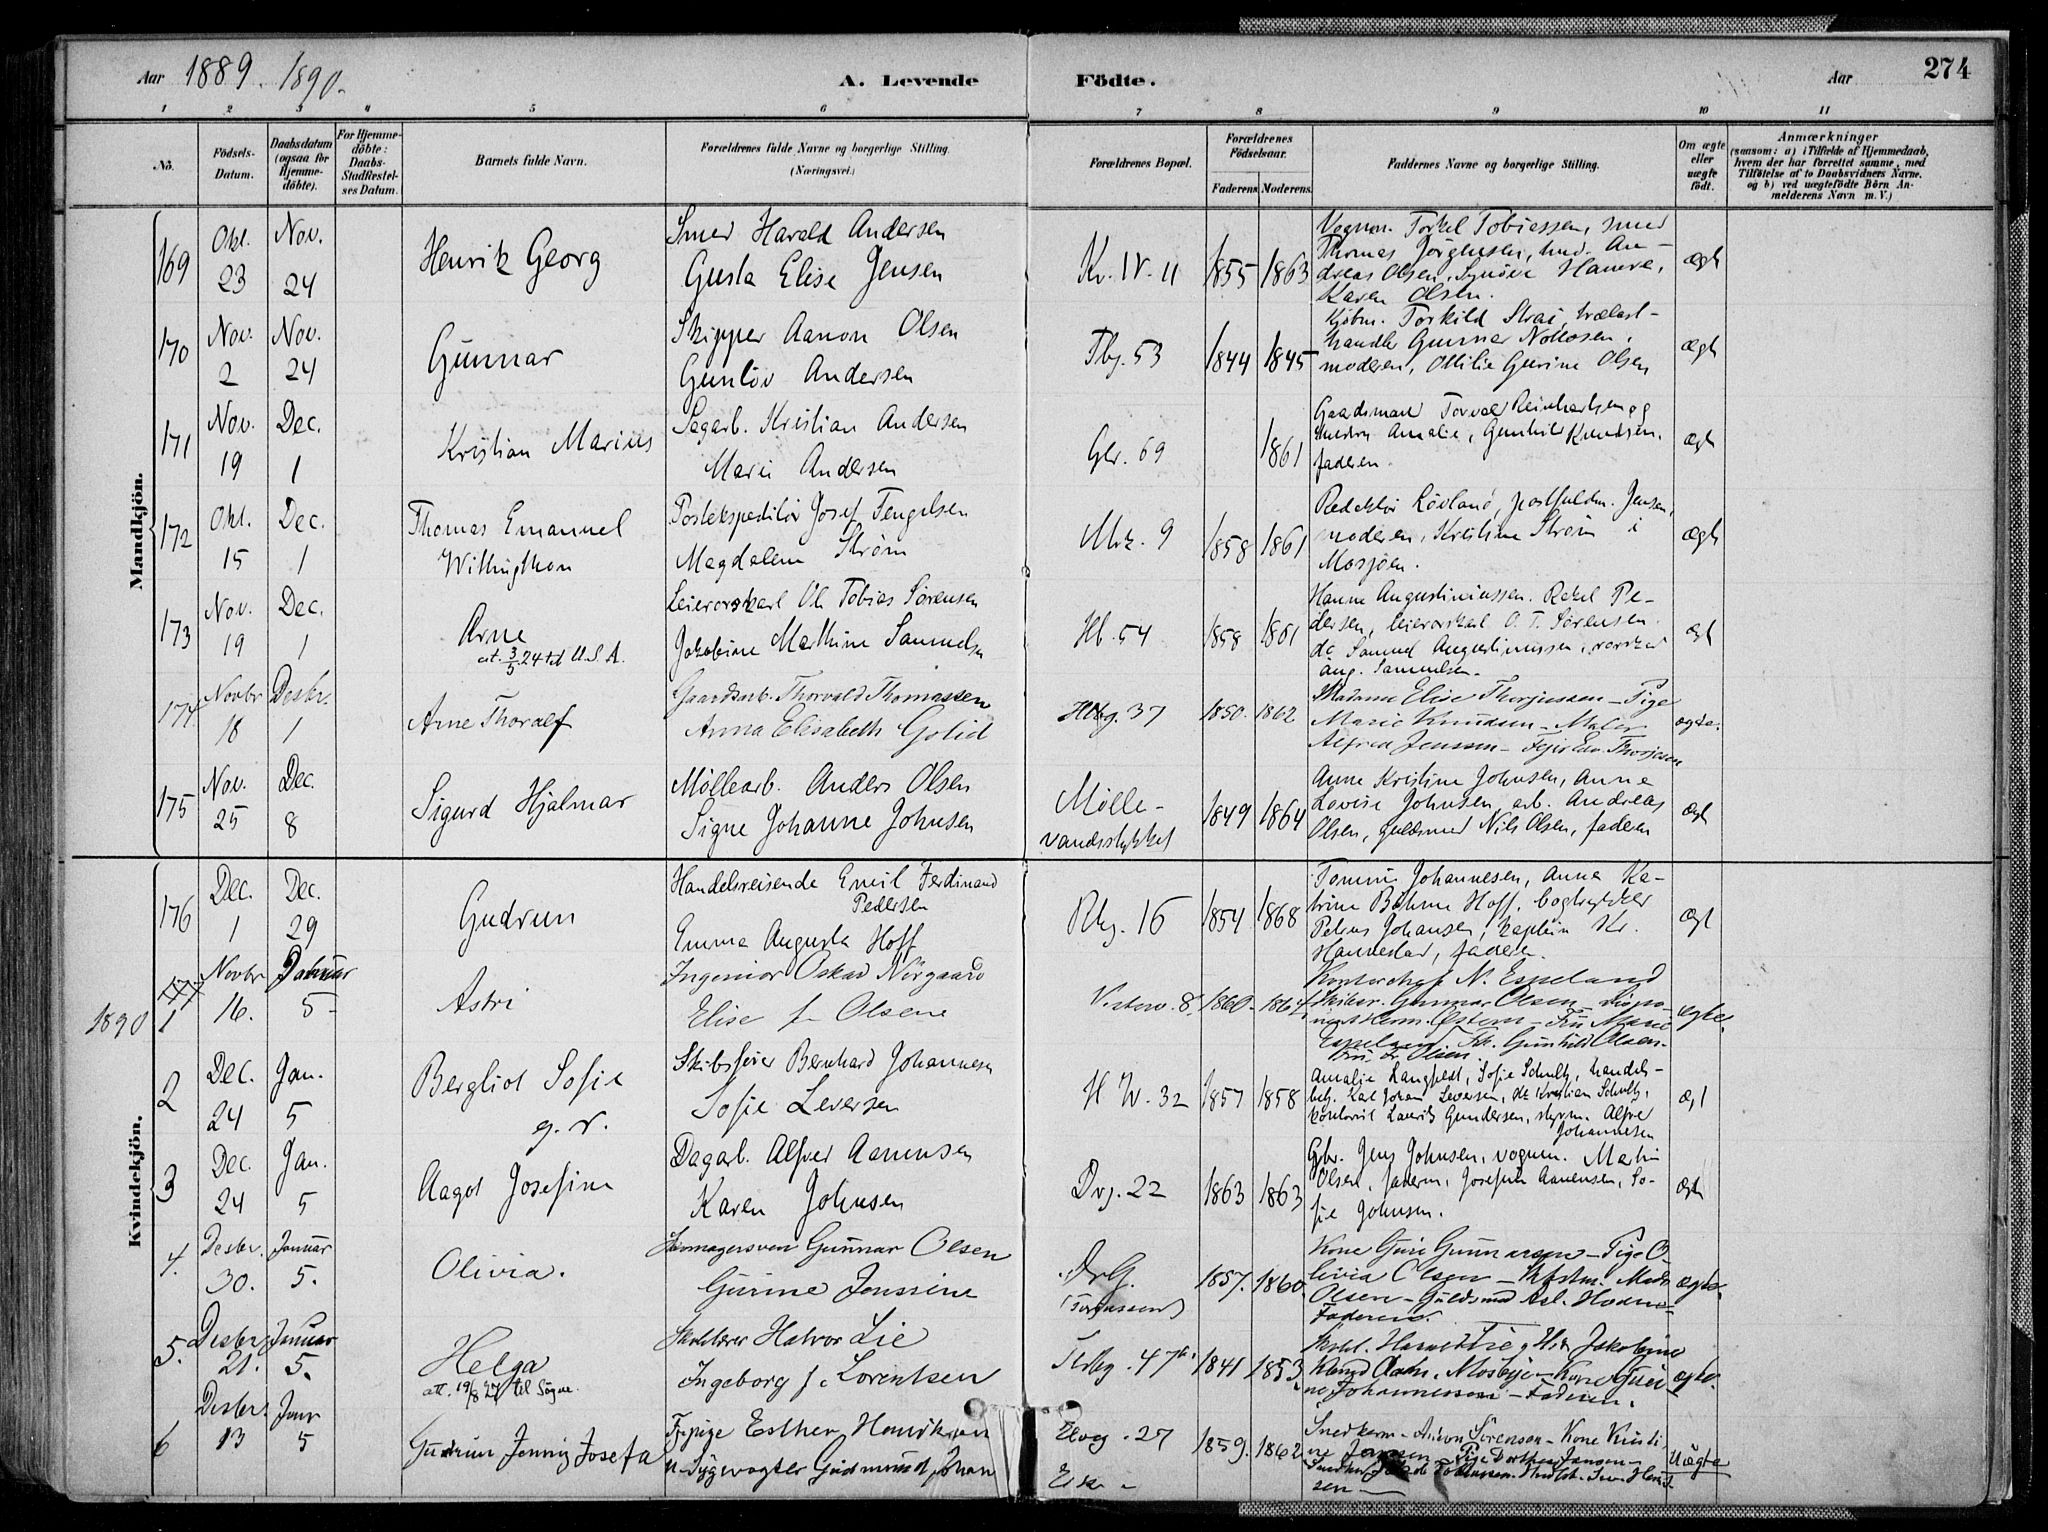 Aar 1889. 1890.
A. Levende Födte.
Aar
274
1 2 3 4 5 6 7 8 9 10 11
Nò.
Födsels-Datum.
Daabsdatum (ogsaa for Hjemmedöbte).
For Hjemmedöbte: Daabs-Stadfæstelses Datum.
Barnets fulde Navn.
Forældrenes fulde Navne og borgerlige Stilling.
(Næringsvei.)
Forældrenes Bopæl.
Forældrenes Födselsaar.
Faderens Moderens.
Faddernes Navne og borgerlige Stilling.
Om ægte eller uægte födt.
Anmærkninger
(saasom: a) i Tilfælde af Hjemmedaab, hvem der har forrettet samme, med Tilföielse af to Daabsvidners Navne. og b) ved uægtefödte Börn Anmelderens Navn m. V.)
Mandkjön.
169 Okt. 23 Nov. 24 Henrik Georg
Smed Harald Andersen
Gusta Elise Jensen
Kv. IV. 11 1855 1863
Vognm. Torkel Tobiassen, smed
Thomas Jörgensen, An-
dreas Olsen,
Karen Olsen.
ægt
170 Nov. 2 Nov. 24 Gunnar
Skipper Aanon Olsen
Gunlöv Andersen
Tbg. 53 1844 1845
Kjöbm. Torkild Strai, trælast-
handler Gunnar
moderen, Ottilie Gurine Olsen
ægt
171 Nov. 19 Dec. 1 Kristian Marius
Sagarb. Kristian Andersen
Mari Andersen
69 1861
Gaardsmand Reinhartsen og
Amalie, Gunhild Knudsen,
faderen.
ægt
172 Okt. 15 Dec. 1 Thomas Emanuel
Postekspeditör Josef Fengelsen
Magdalene Ström
Mrk. 9 1858 1861
Redaktör Rövland, postfuldm. Jensen,
moderen, Kristine Ström i
Mosjöen.
ægt
173 Nov. 19 Dec. 1 Arne
att. 3/5 24 til U.S.A.
Ole Tobias Sörensen
Jakobine Marthine Samuelsen
Hb. 54 1858 1861
Hanne Augustiniussen. Rakel Pe-
dersen, O. T. Sörensen.
do Samuel Augustinussen,
Aug. Samuelsen.
ægt
174 Novbr 18 Desbr. 1 Arne Thoralf
Gaardsarb. Thorvald Thomassen
Anna Elisabeth Golid
37 1850. 1862
Madame Elise Thorjussen - Pige
Marie Knudsen - Maler
Alfred Jenssen -
ægte.
175 Nov. 25 Dec. 8 Sigurd Hjalmar
Möllearb. Anders Olsen
Signe Johanne Johnsen
Mölle-
vandsstykket
1849 1864
Anne Kristine Johnsen, Anne
Lovise Johnsen, arb. Andreas
Olsen, guldsmed Nils Olsen, faderen
ægt
Kvindekjön.
176 Dec. 1 Dec. 29 Gudrun
Handelsreisende Emil Ferdinand
Pedersen
Emma Augusta Hoff
Rbg. 16 1854 1868
Tommi Johannesen, Anna Ka-
trine Böhme Hoff, bogtrykker
Petrus Johansen, kaptein Kr.
Hannestad, faderen.
ægt
1890 1 Novbr 16. Januar 5 Astri
Ingeniör Oskar Nörgaard
Elise f. Olsen
8. 1860. 1864
Kontorchef N. Espeland
Gunnar Olsen - Dispo-
nent Herm. - Fru Marie
Espeland. Frk. Gunhild Olsen.
ægte.
2 Dec. 24 Jan. 5 Bergliot Sofie
g. v.
Bernhard Johannesen
Sofie Leversen
H. V. 32 1857 1858
Amalie Langfeldt, Sofie Schultz, handels-
betj. Karl Johan Leversen, do Kristian Schultz,
kontorist Lauritz Gundersen, styrm. Alfred
Johannesen
ægt
3 Dec. 24 Jan. 5 Aagot Josefine
Dagarb. Alfred Aanensen
Karen Johnsen
Dvg. 22 1863 1863
Gbr. Jens Johnsen, vognm. Martin
Olsen, faderen, Josefine Aanensen, So-
fie Johnsen.
ægte
4. Desbr. 30. Januar 5. Olivia.
Skomagersven Gunnar Olsen
Gurine Jenssine
DrG. 1857. 1860.
Kone Guri Gunnarsen - Pige O-
livia Olsen - Mads
Olsen - Guldsmed
Faderen.
ægte.
5. Desbr 21. Januar 5. Helga
att. 19/8 27 til Sögne.
Skolelærer Halvor Lie
Ingeborg f. Lorentsen
47 1841 1853
Lie Jakobine
Mosbye - Kone
Johannessen - Faderen.
ægte.
6 Desbr. 13 Janr 5 Gudrun Jenny Josefa
Fpige Esther Henriksen
Gudmund Johan
Elvg. 27 1859. 1862
Snedkerm. Sörensen - Kone Kristi-
ne Jenssen - Pige Dorthea Jansen -
Uægte